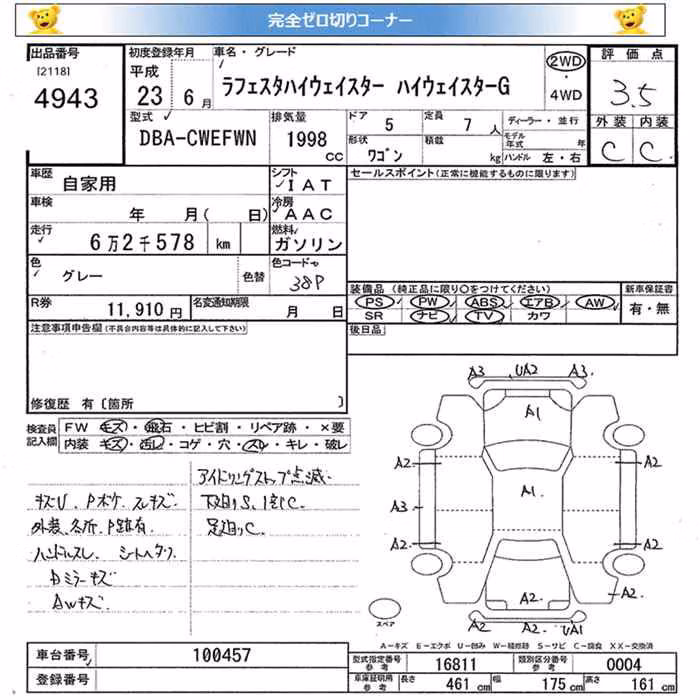 完全ゼロ切りコーナー
出品番号
[2118]
4943
初度登録年月
平成
23 6 月
車名・グレード
ラフェスタハイウェイスター ハイウェイスターG
2WD
・
4WD
評価点
3.5
外装 内装
C C
型式
DBA-CWEFWN
排気量
1998
CC
ドア 5
定員 7 人
形状 ワゴン
積載 kg
ディーラー・並行
モデル年式 年
ハンドル 左・右
車歴 自家用
シフト IAT
車検 年 月( 日)
冷房 AAC
走行 6万2千578 km
燃料 ガソリン
色 グレー 色替
色コード 38P
R券 11,910 円
名変通知期限 月 日
セールスポイント(正常に機能するものに限ります)
装備品 (純正品に限り○をつけてください)
PS PW ABS エアB AW
SR ナビ TV カワ
新車保証書
有・無
後日品
注意事項申告欄(不具合内容等は具体的に記入して下さい)
修復歴 有〔箇所 〕
検査員記入欄
FW キズ・飛石・ヒビ割・リペア跡・×要
内装 キズ・汚レ・コゲ・穴・スレ・キレ・破レ
アイドリングストップ点滅
キズU、Pボケ、スレキズ
下廻りS、1部C
外装、各所、P跡有
足廻りC
ハンドルスレ シートヘタリ
Dミラーキズ
Awキズ
A3 UA2 A3
A1
A2 A2
A1
A3
A2 A2
A2 A2
A2 A2 UA1
スペア
A-キズ E-エクボ U-凹み W-補修跡 S-サビ C-腐食 XX-交換済
車台番号 100457
登録番号
型式指定番号 参考 16811
類別区分番号 参考 0004
車庫証明用 参考 長さ 461 cm 幅 175 cm 高さ 161 cm